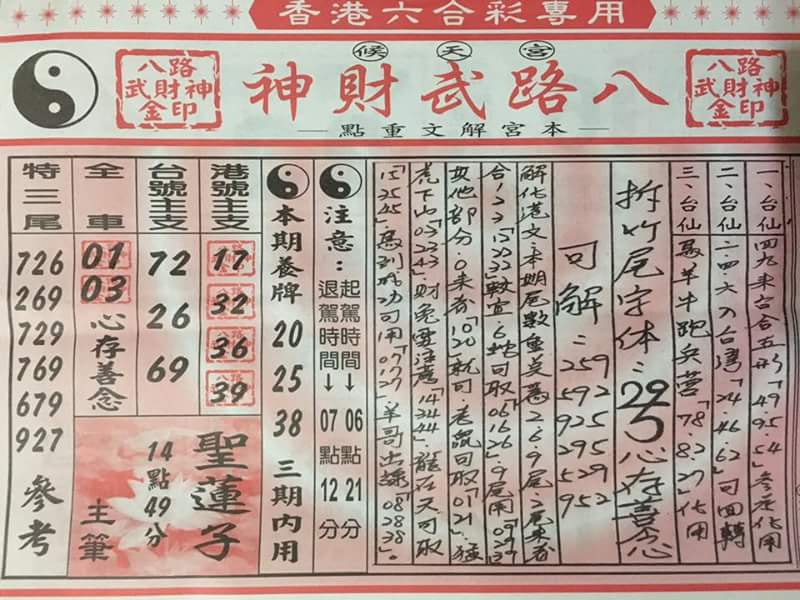 香港六合彩專用
候天宮
八路武財神
本宮解文重點
八路
武財神
金印
八路
武財神
金印
一、台仙 四九來台合五形「49.95.54」參考化用
二、台仙 二.四六入台灣「24.46.62」可回轉
三、台仙 馬羊牛跑兵營「78.82.27」化用
拆竹尾字体:29了心存善念
可解:259
592
925
295
529
952
解化港文:本期尾數重美意2.6.9尾:二尾來者
合123「12.22.32」較宜:6蛇可取「06.16.26」9尾用
其他部分:0來者「10.20」就可.老鼠可取「01.21」猛
虎下山「03.23.43」.財兔要注意「14.34.44」龍在天可取
「15.25.45」馬到成功可用「07.17.27」羊哥出課「08.28.38」。
注意:
起駕時間→06點21分
退駕時間→07點12分
本期養牌
20
25
38
三期內用
港號主支
17
32
36
39
台號主支
72
26
69
全車
01
03
心存善念
特三尾
726
269
729
769
679
927
參考
聖蓮子
14點49分
主筆